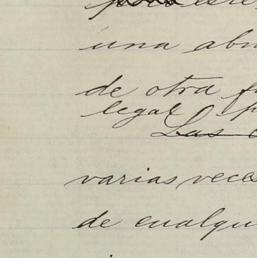 una
de otra
legal
Las
varias veces
de cualqu